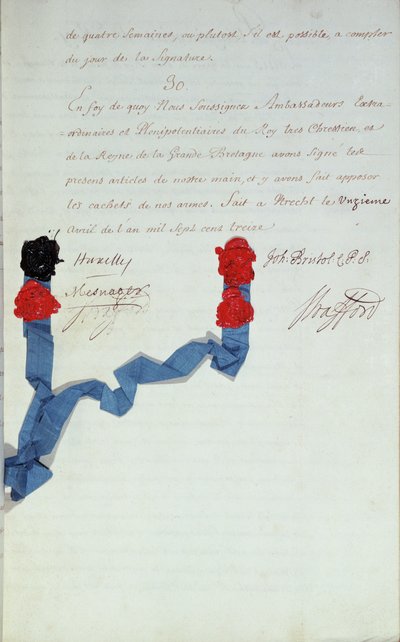 de quatre Semaines, ou plutost S'il est possible, a compter
du jour de la Signature.
30.
En foy de quoy Nous Soussignez Ambassadeurs Extra-
-ordinaires et Plenipotentiaires du Roy tres Chrestien, et
de la Reyne de la Grande Bretagne avons signé les
presens articles de nostre main, et y avons fait apposer
les cachets de nos armes. Fait a Utrecht le Unzieme
Avril de l'an mil sept cens treize
Huxelles
Joh. Bristol C.P.S.
Mesnager
Strafford